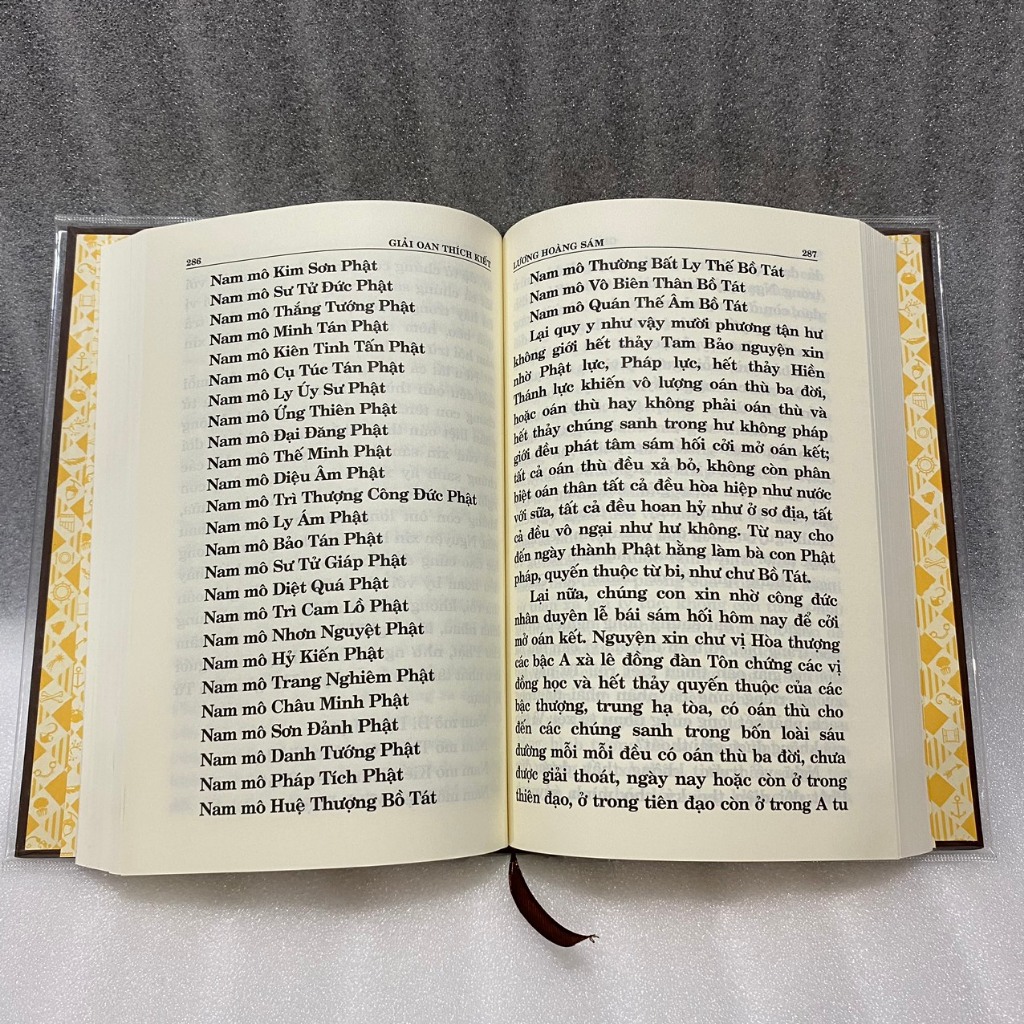 286
GIẢI OAN THÍCH KIẾT
Nam mô Kim Sơn Phật
Nam mô Sư Tử Đức Phật
Nam mô Thắng Tướng Phật
Nam mô Minh Tán Phật
Nam mô Kiên Tinh Tấn Phật
Nam mô Cụ Túc Tán Phật
Nam mô Ly Úy Sư Phật
Nam mô Ứng Thiên Phật
Nam mô Đại Đăng Phật
Nam mô Thế Minh Phật
Nam mô Diệu Âm Phật
Nam mô Trì Thượng Công Đức Phật
Nam mô Ly Ám Phật
Nam mô Bảo Tán Phật
Nam mô Sư Tử Giáp Phật
Nam mô Diệt Quá Phật
Nam mô Trì Cam Lồ Phật
Nam mô Nhơn Nguyệt Phật
Nam mô Hỷ Kiến Phật
Nam mô Trang Nghiêm Phật
Nam mô Châu Minh Phật
Nam mô Sơn Đảnh Phật
Nam mô Danh Tướng Phật
Nam mô Pháp Tích Phật
Nam mô Huệ Thượng Bồ Tát
LƯƠNG HOÀNG SÁM
287
Nam mô Thường Bất Ly Thế Bồ Tát
Nam mô Vô Biên Thân Bồ Tát
Nam mô Quán Thế Âm Bồ Tát
Lại quy y như vậy mười phương tận hư
không giới hết thảy Tam Bảo nguyện xin
nhờ Phật lực, Pháp lực, hết thảy Hiền
Thánh lực khiến vô lượng oán thù ba đời,
hoặc oán thù hay không phải oán thù và
hết thảy chúng sanh trong hư không pháp
giới đều phát tâm sám hối cởi mở oán kết;
tất cả oán thù đều xả bỏ, không còn phân
biệt oán thân tất cả đều hòa hiệp như nước
với sữa, tất cả đều hoan hỷ như ở sơ địa, tất
cả đều vô ngại như hư không. Từ nay cho
đến ngày thành Phật hằng làm bà con Phật
pháp, quyến thuộc từ bi, như chư Bồ Tát.
Lại nữa, chúng con xin nhờ công đức
nhân duyên lễ bái sám hối hôm nay để cởi
mở oán kết. Nguyện xin chư vị Hòa thượng
các bậc A xà lê đồng đàn Tôn chứng các vị
đồng học và hết thảy quyến thuộc của các
bậc thượng, trung hạ tòa, có oán thù cho
đến các chúng sanh trong bốn loài sáu
đường mỗi mỗi đều có oán thù ba đời, chưa
được giải thoát, ngày nay hoặc còn ở trong
thiên đạo, ở trong tiên đạo còn ở trong A tu